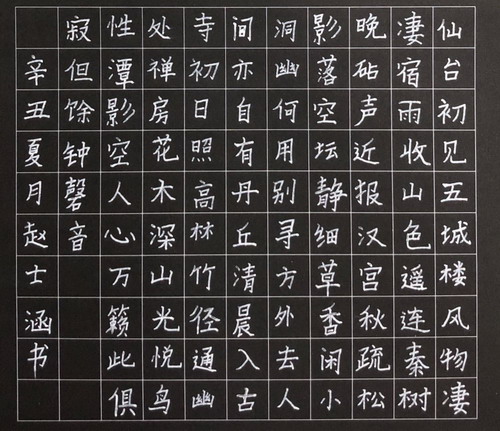 仙台初见五城楼风物凄
凄宿雨收山色遥连秦树
晚砧声近报汉宫秋疏松
影落空坛静细草香闲小
洞幽何用别寻方外去人
间亦自有丹丘清晨入古
寺初日照高林竹径通幽
处禅房花木深山光悦鸟
性潭影空人心万籁此俱
寂但馀钟磬音
辛丑夏月赵士涵书